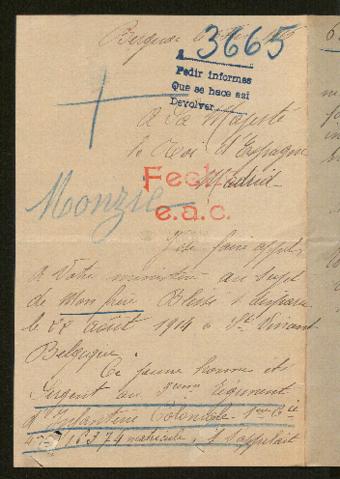 3665
Pedir informes
Que se hace asi
Devolver
A Sa Majesté
le Roi d'Espagne
Madrid
Fecha
e.a.c.
Monzie
J'ose faire appel
a Votre ministère au sujet
de mon frère Blessé & disparu
le 22 août 1914 a St Vincent
Belgique.
Ce jeune homme est
Sergent au 3ème Régiment
d'Infanterie Coloniale 1ère Cie
16374 matricule, il s'appelait